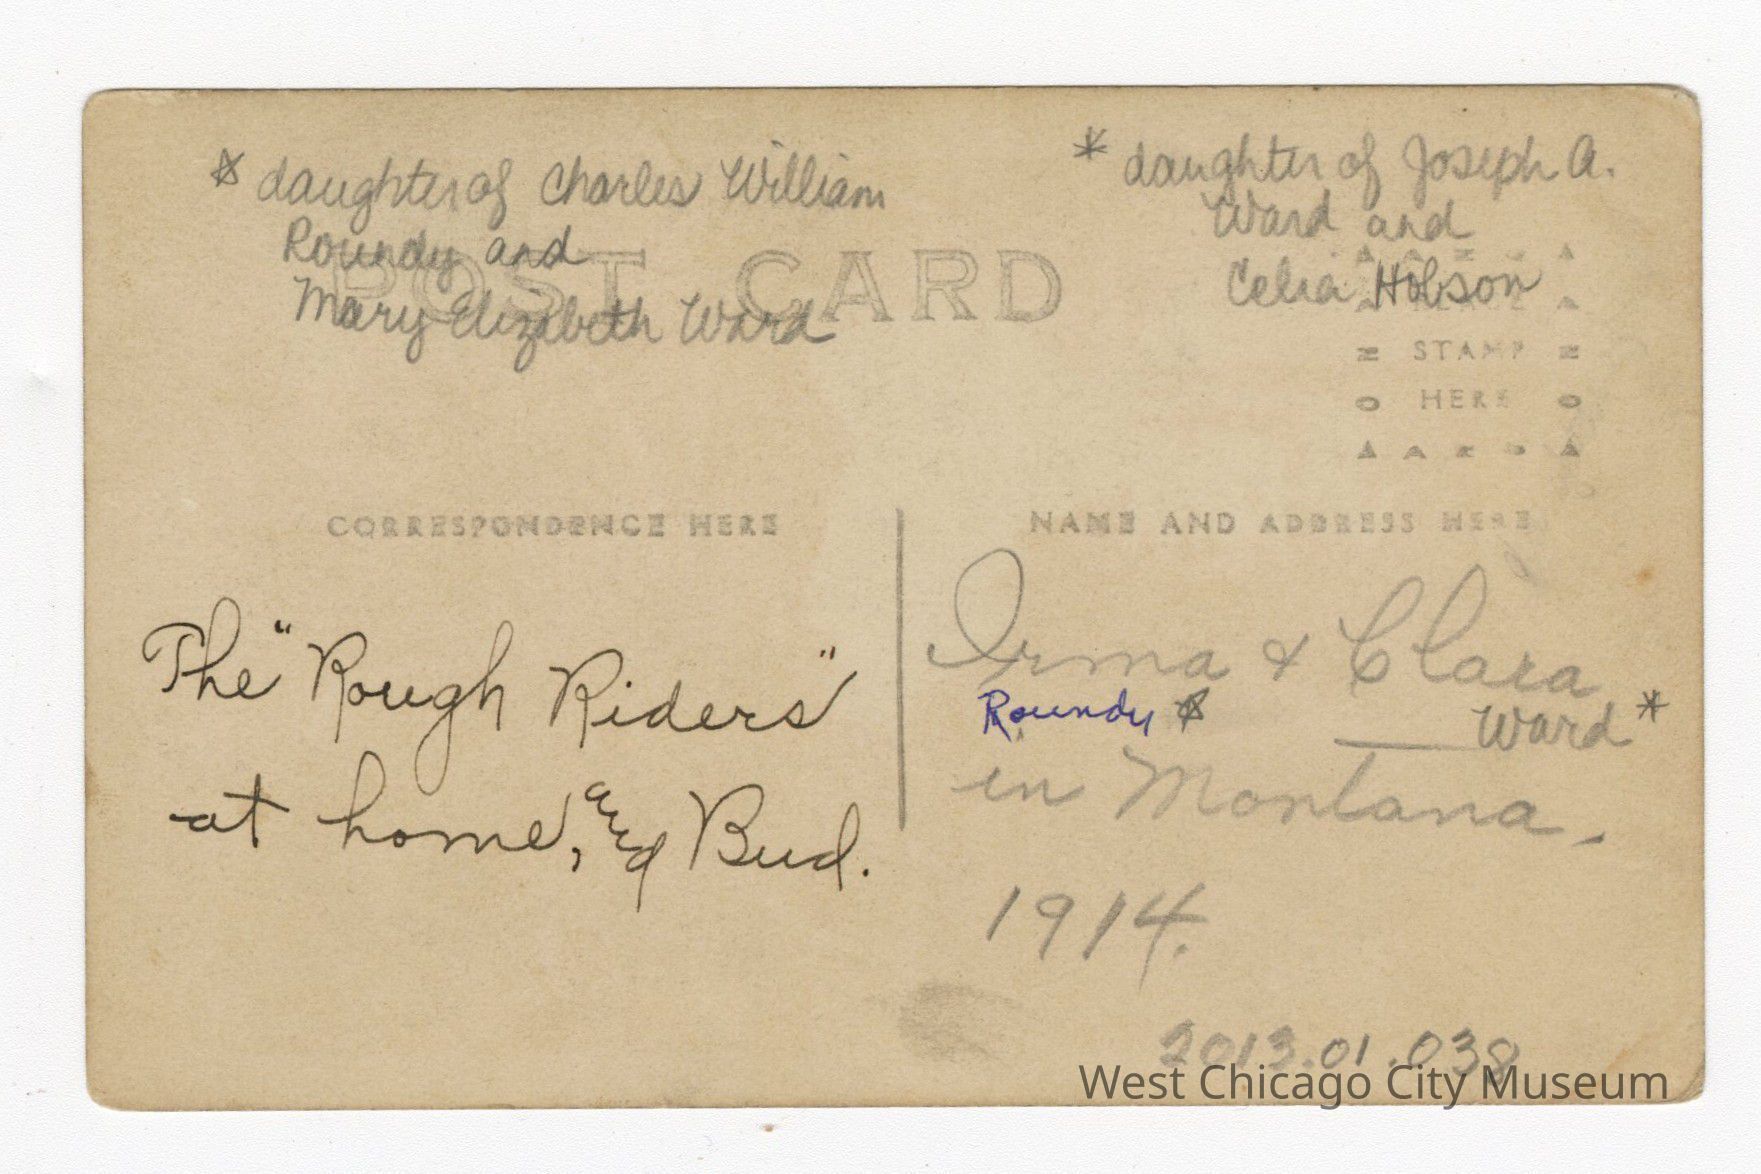 ☆ daughter of Charles William
Roundy and
Mary Elizabeth Ward
* daughter of Joseph A.
Ward and
Celia Hobson
POST CARD
PLACE
STAMP
HERE
CORRESPONDENCE HERE
NAME AND ADDRESS HERE
The "Rough Riders"
at home, and Bud.
Irma & Clara
Roundy ☆
Ward *
in Montana.
1914.
2013.01.038
West Chicago City Museum